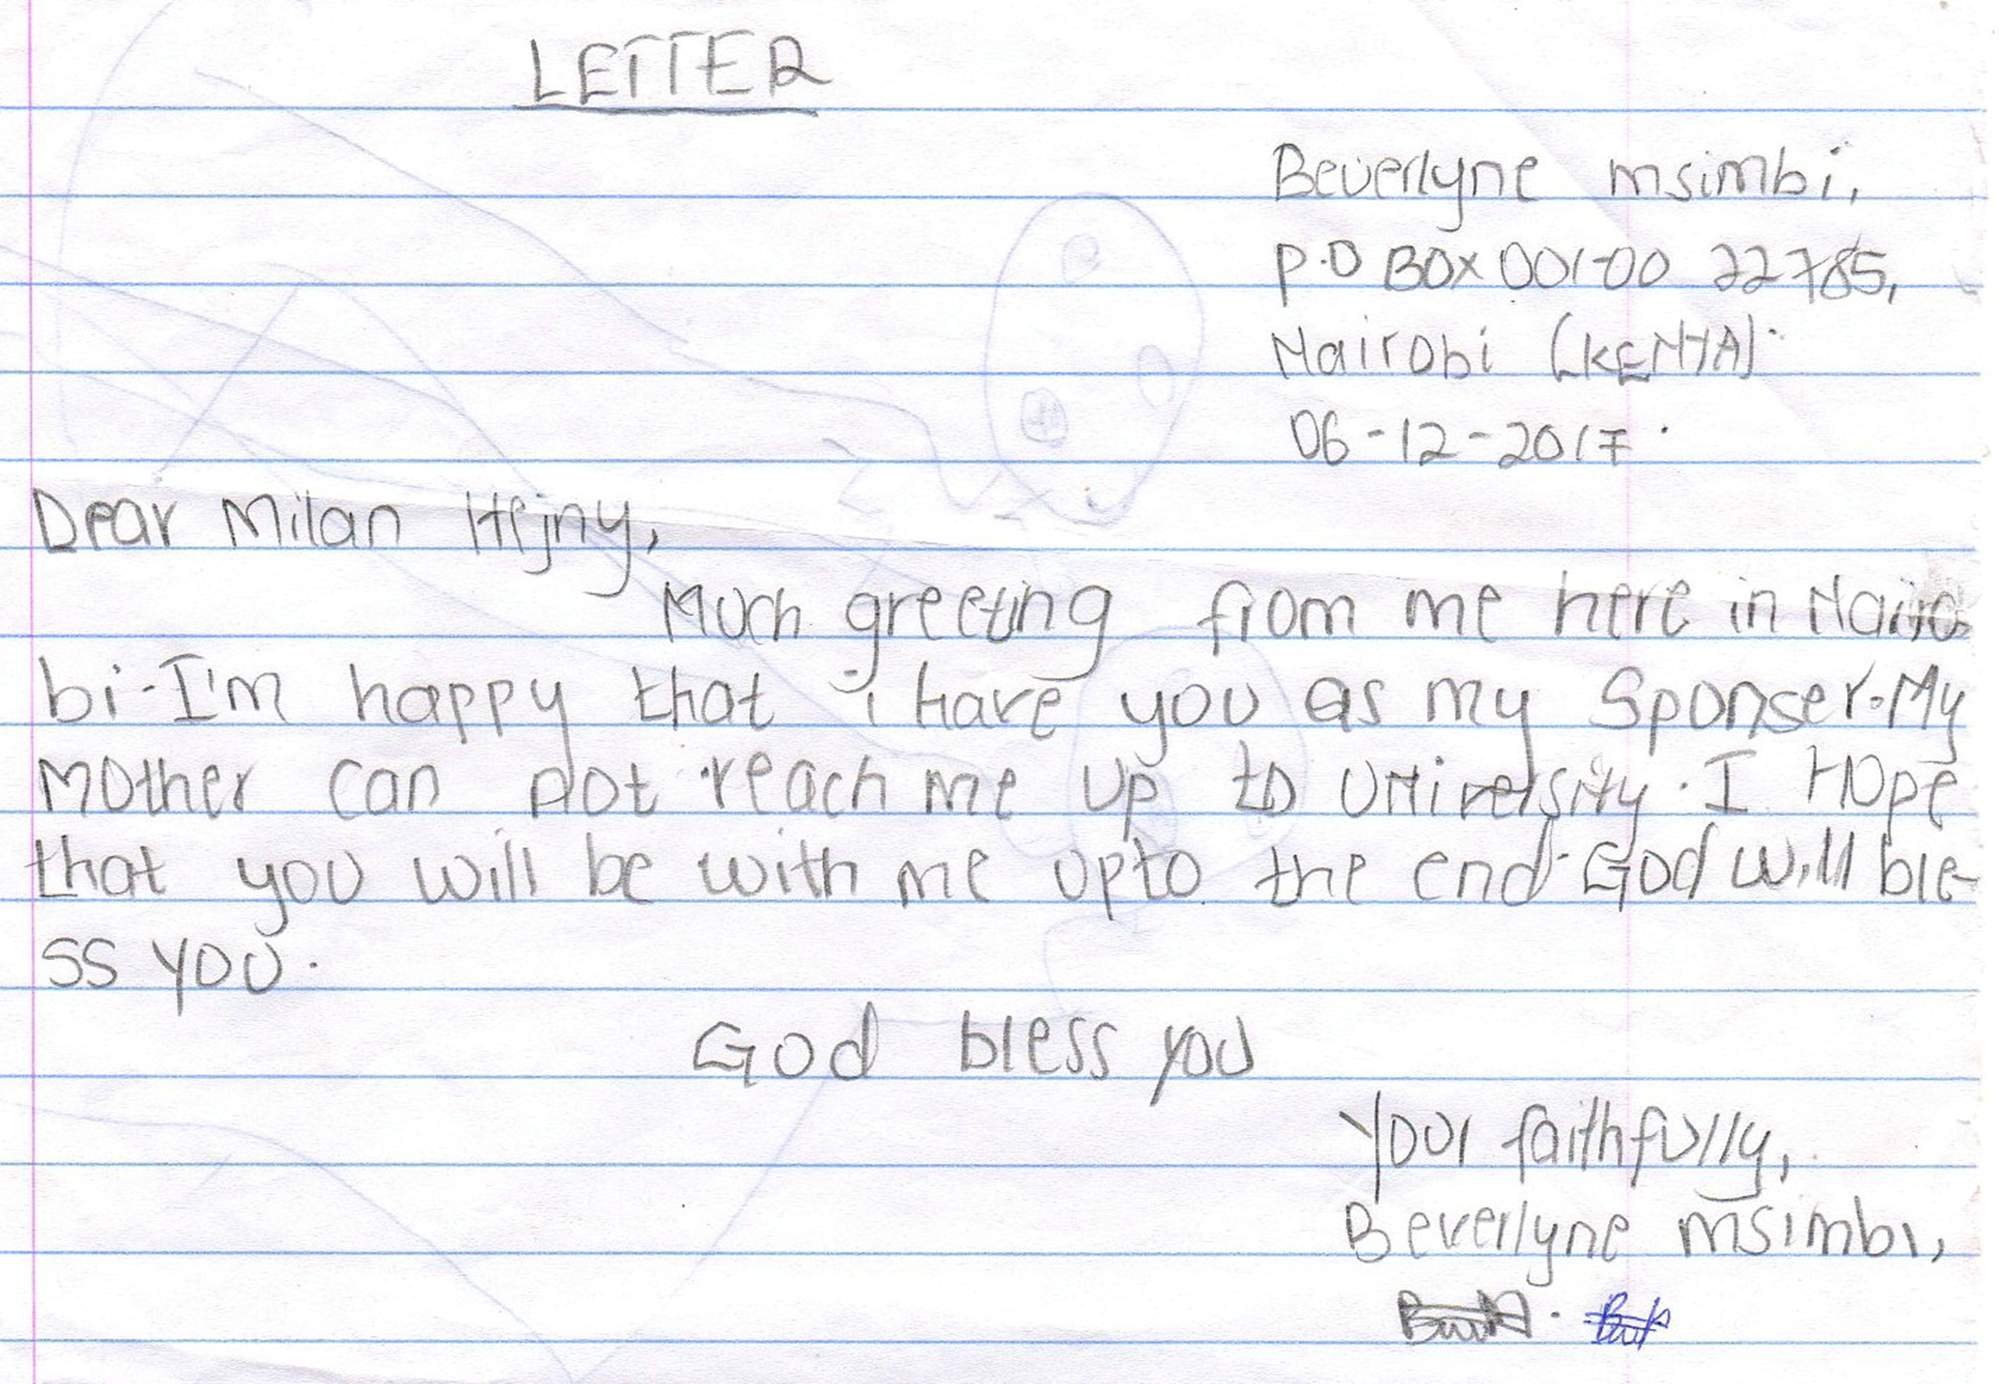 LETTER
Beverlyne msimbi,
P.O BOX 00100 22785,
Nairobi (KENYA).
06-12-2017.
Dear Milan Hejny,
Much greeting from me here in Nairo
bi. I'm happy that i have you as my Sponser. My
Mother can not reach me up to University. I Hope
that you will be with me upto the end. God will ble-
ss you.
God bless you
Your faithfully,
Beverlyne msimbi,